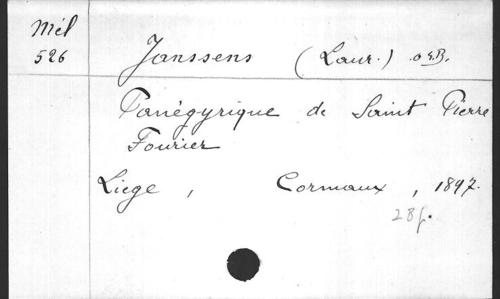 Mél
526
Janssens (Laur.) O.S.B.
Panégyrique de Saint Pierre
Fourier
Liege, Cormaux, 1897.
28 p.